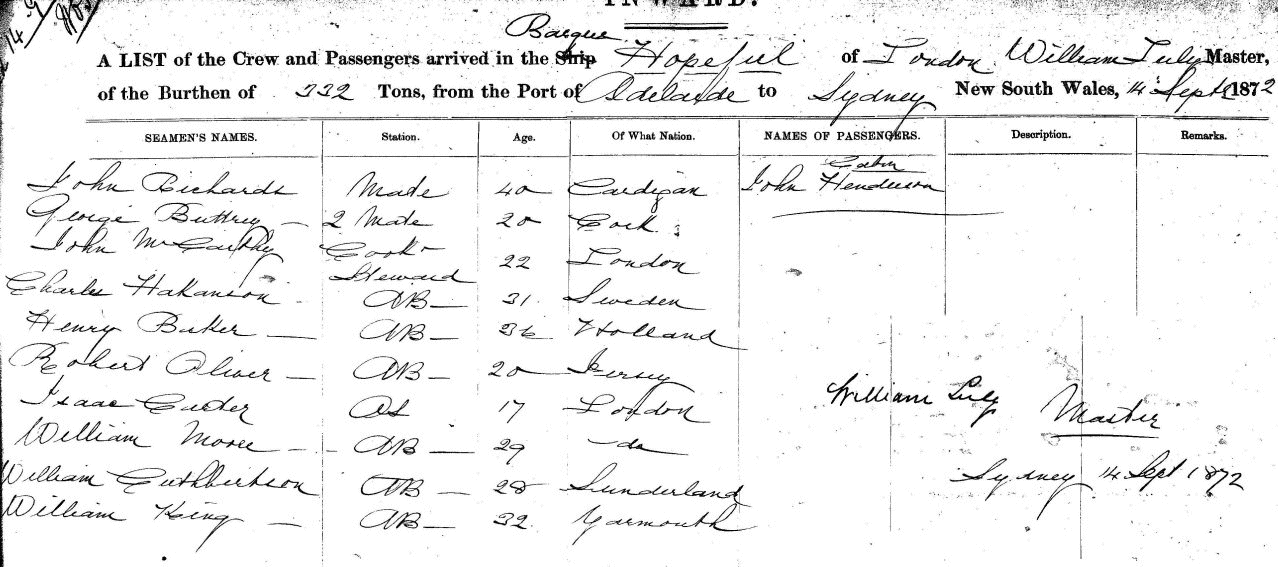 INWARD.
Barque
A LIST of the Crew and Passengers arrived in the Ship Hopeful of London William Luly Master,
of the Burthen of 332 Tons, from the Port of Adelaide to Sydney New South Wales, 14 Sept 1872
SEAMEN'S NAMES. Station. Age. Of What Nation. NAMES OF PASSENGERS. Description. Remarks.
Cabin
John Richards Mate 40 Cardigan John Henderson
George Buttrey 2 Mate 20 Cork
John McCarthy Cook Steward 22 London
Charles Hakanson AB 31 Sweden
Henry Baker AB 36 Holland
Robert Oliver AB 20 Jersey
Isaac Carter OS 17 London
William Luly Master
William Moore AB 29 do
William Cuthbertson AB 28 Sunderland
Sydney 14 Sept 1872
William King AB 32 Yarmouth